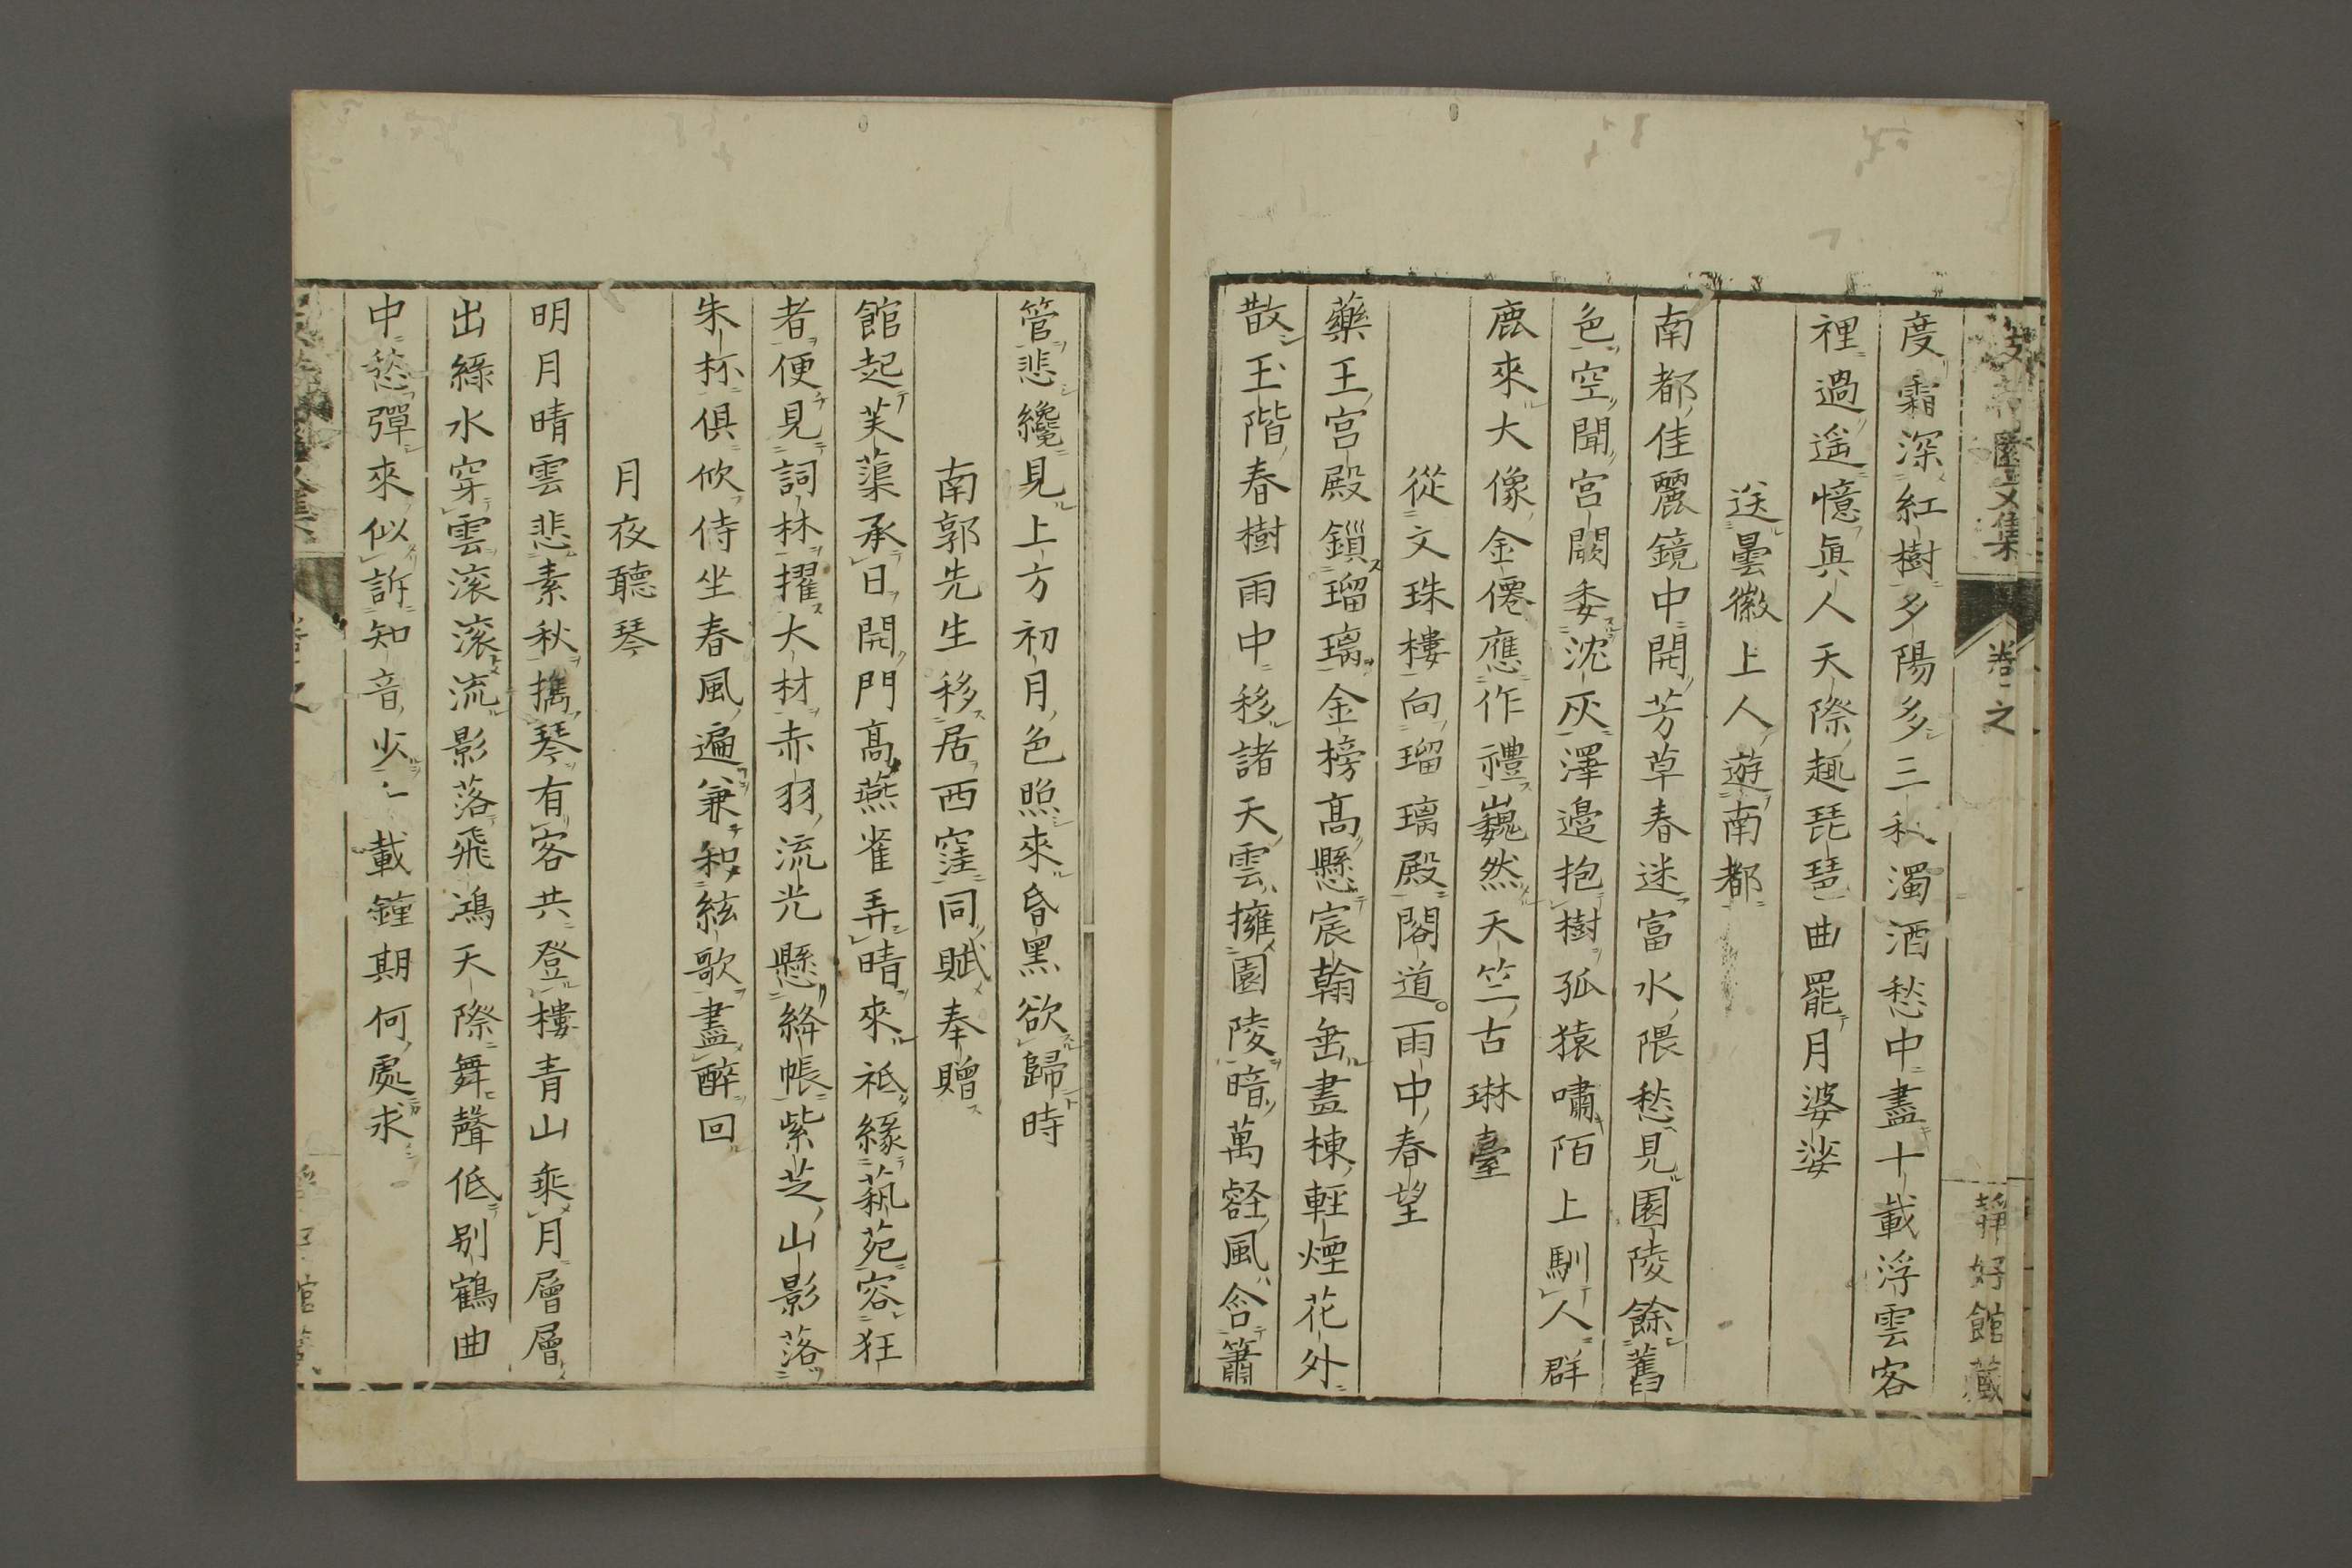 度霜深紅樹夕陽多三秋濁酒愁中盡十載浮雲客
裡過遥憶眞人天際趣琵琶一曲罷月婆娑
送曇徽上人遊南都
南都佳麗鏡中開芳草春迷富水隈愁見園陵餘舊
色空聞宮闕委沈灰澤邉抱樹孤猿嘯陌上馴人群
鹿來大像金僊應作禮巍然天竺古琳臺
從文珠樓向瑠璃殿閣道雨中春望
藥王宮殿鎻瑠璃金榜髙懸宸翰垂畫棟輕煙花外
散玉階春樹雨中移諸天雲擁園陵暗萬壑風含簫
管悲纔見上方初月色照來昏黑欲歸時
南郭先生移居西窪同賦奉贈
館起芙蕖承日開門髙燕雀弄晴來祗緣藝苑容狂
者便見詞林擢大材赤羽流光懸絳帳紫芝山影落
朱杯俱欣侍坐春風遍兼和絃歌盡醉回
月夜聽琴
明月晴雲悲素秋攜琴有客共登樓青山乘月層層
出綠水穿雲滚滚流影落飛鴻天際舞聲低別鶴曲
中愁彈來似訴知音少千載鐘期何處求
園文集
卷之
靜好館藏